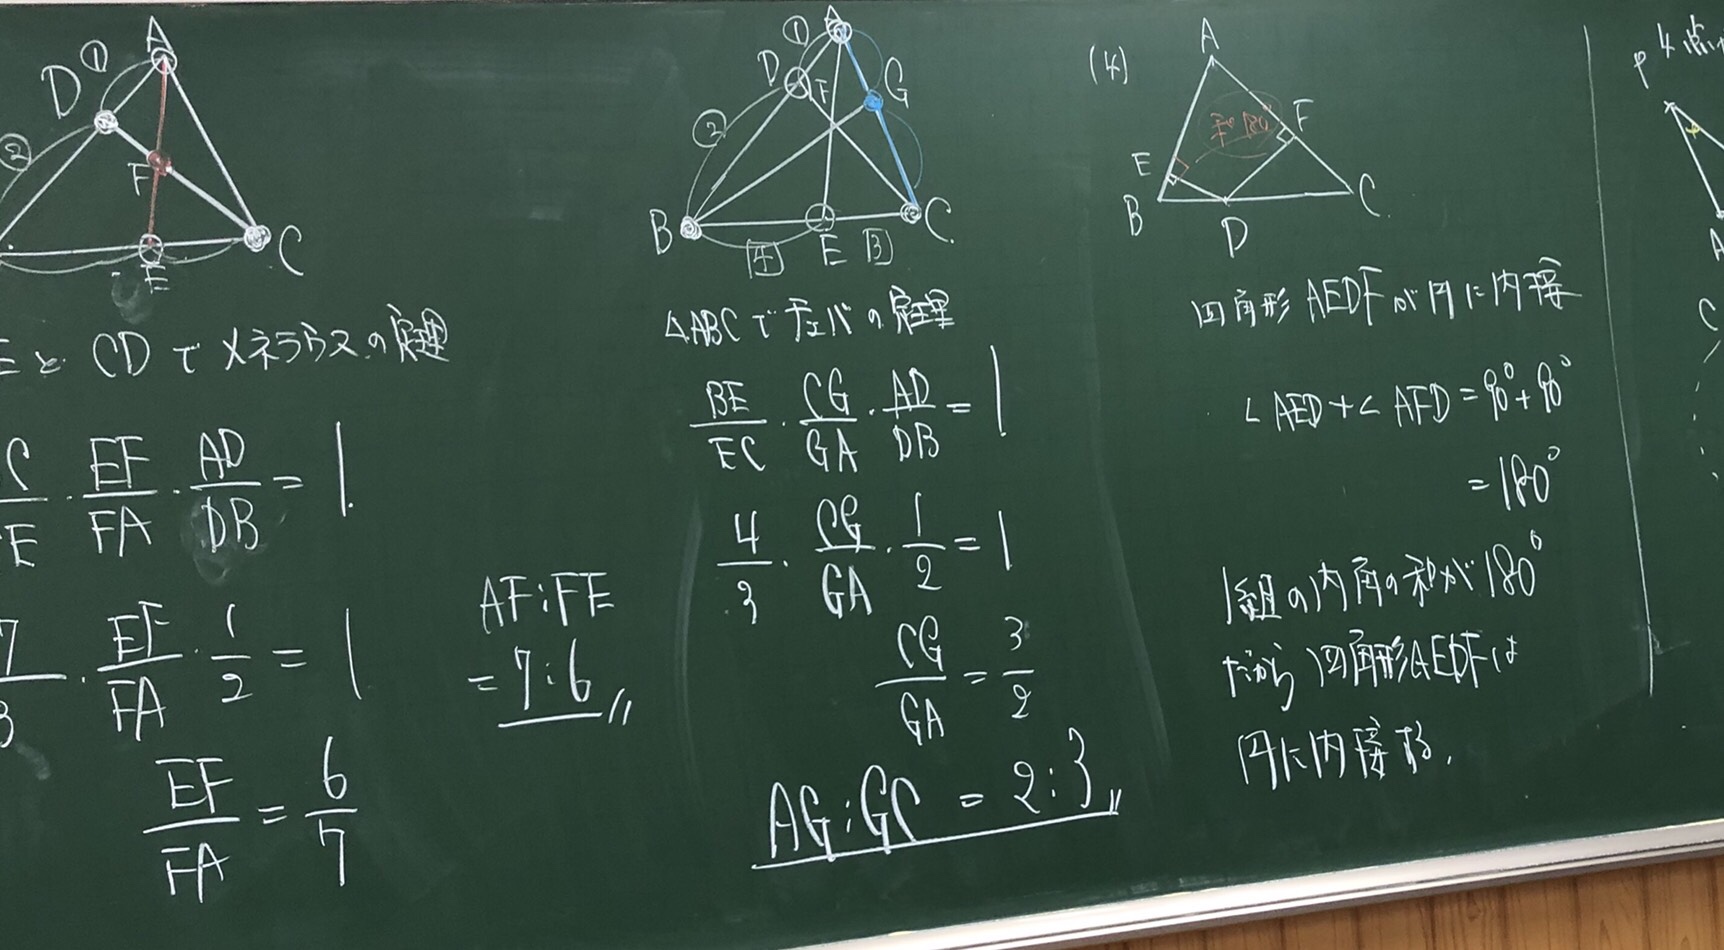 A
D
①
②
F
E
C
EとCDでメネラウスの定理
C/E · EF/FA · AD/DB = 1
7/3 · EF/FA · 1/2 = 1
EF/FA = 6/7
AF:FE
= 7:6
A
①
D
F
G
②
B
4
E
3
C
△ABCでチェバの定理
BE/EC · CG/GA · AD/DB = 1
4/3 · CG/GA · 1/2 = 1
CG/GA = 3/2
AG:GC = 2:3
(4)
A
F
E
B
D
C
四角形AEDFが円に内接
∠AED+∠AFD=90°+90°
=180°
1組の内角の和が180°
だから四角形AEDFは
円に内接する.
P
4点
A
C